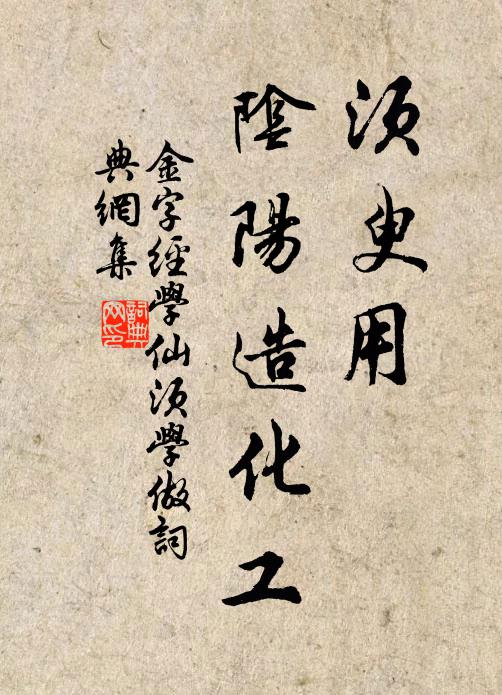 須臾用
陰陽造化工
金字經學仙須學做詞
典網集
詞典
网印